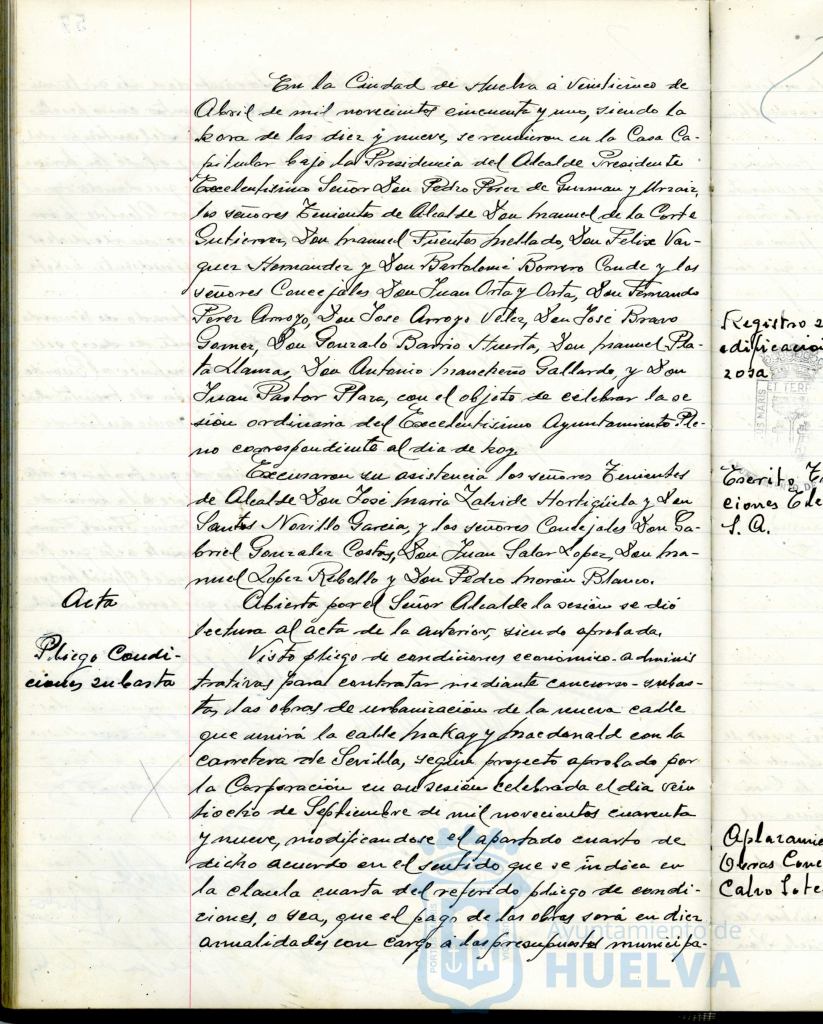 En la Ciudad de Huelva á veinticinco de
Abril de mil novecientos cincuenta y uno, siendo la
hora de las diez y nueve, se reunieron en la Casa Ca-
pitular bajo la Presidencia del Alcalde Presidente
Excelentísimo Señor Don Pedro Pérez de Guzman y Urzaiz,
los señores Tenientes de Alcalde Don Manuel de la Corte
Gutierrez, Don Manuel Fuentes Mellado, Don Felix Vaz-
quez Hernandez y Don Bartolomé Borrero Conde y los
señores Concejales Don Juan Orta y Orta, Don Fernando
Perez Arroyo, Don Jose Arroyo Velez, Don José Bravo
Gomez, Don Gonzalo Barrio Huerta, Don Manuel Pla-
ta Llanzas, Don Antonio Mancheño Gallardo, y Don
Juan Pastor Plaza, con el objeto de celebrar la se
sión ordinaria del Excelentisimo Ayuntamiento Ple-
no correspondiente al dia de hoy.
Excusaron su asistencia los señores Tenientes
de Alcalde Don José Maria Hortigüela y Don
Santos Novillo Garcia, y los señores Concejales Don Ga-
briel Gonzalez Costas, Don Juan Salar Lopez, Don Ma-
nuel Lopez Rebollo y Don Pedro Morón Blanco.
Acta
Abierta por el Señor Alcalde la sesión se dió
lectura al acta de la anterior, siendo aprobada.
Pliego Condi-
ciones subasta
Visto pliego de condiciones economico-adminis
trativas para contratar mediante concurso-subas-
ta, las obras de urbanización de la nueva calle
que unirá la calle Makay y Macdonald con la
carretera de Sevilla, según proyecto aprobado por
la Corporación en su sesión celebrada el dia vein
tiocho de Septiembre de mil novecientos cuarenta
y nueve, modificandose el apartado cuarto de
dicho acuerdo en el sentido que se indica en
la claula cuarta del referido pliego de condi-
ciones, o sea, que el pago de las obras será en diez
anualidades con cargo á los presupuestos municipa-
Registro
edificacio
zosa
Escrito
ciones Ele
S. A.
Aplazamie
Obras Conc
Calvo Sote
Ayuntamiento de
HUELVA